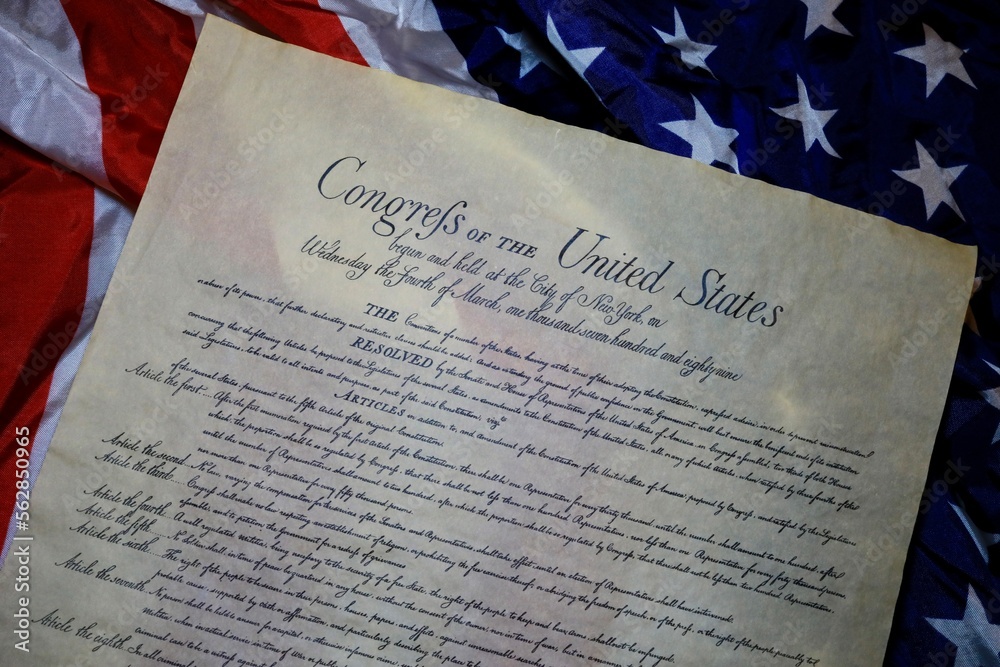 Congreſs OF THE United States
begun and held at the City of New-York, on
Wednesday the Fourth of March, one thousand seven hundred and eighty nine
THE Conventions of a number of the States, having at the time of their adopting the Constitution, expressed a desire, in order to prevent misconstruction
or abuse of its powers, that further declaratory and restrictive clauses should be added: And as extending the ground of public confidence in the Government, will best ensure the beneficent ends of its institution
RESOLVED by the Senate and House of Representatives of the United States of America, in Congreſs aſsembled, two thirds of both Houses
concurring that the following Articles be proposed to the Legislatures of the several States, as amendments to the Constitution of the United States, all, or any of which articles, when ratified by three fourths of the
said Legislatures, to be valid to all intents and purposes, as part of the said Constitution; viz.
ARTICLES in addition to, and amendment of the Constitution of the United States of America, proposed by Congreſs, and ratified by the Legislatures
of the several States, pursuant to the fifth Article of the original Constitution.
Article the first.... After the first enumeration required by the first Article of the Constitution, there shall be one Representative for every thirty thousand, until the number shall amount to one hundred, after
which, the proportion shall be so regulated by Congreſs, that there shall be not leſs than one hundred Representatives, nor leſs than one Representative for every forty thousand persons,
until the number of Representatives shall amount to two hundred, after which the proportion shall be so regulated by Congreſs, that there shall not be leſs than two hundred Representatives,
nor more than one Representative for every fifty thousand persons.
Article the second.. No law, varying the compensation for the services of the Senators and Representatives, shall take effect, until an election of Representatives shall have intervened.
Article the third..... Congreſs shall make no law respecting an establishment of religion, or prohibiting the free exercise thereof; or abridging the freedom of speech, or of the preſs; or the right of the people peaceably to
aſsemble, and to petition the Government for a redreſs of grievances.
Article the fourth.. A well regulated militia, being neceſsary to the security of a free State, the right of the people to keep and bear Arms, shall not be infringed.
Article the fifth..... No Soldier shall, in time of peace be quartered in any house, without the consent of the owner, nor in time of war, but in a manner
Article the sixth..... The right of the people to be secure in their persons, houses, papers, and effects, against unreasonable searches
probable cause, supported by oath or affirmation, and particularly describing the place to be
Article the seventh. No person shall be held to answer for a capital, or otherwise infamous crime,
militia, when in actual service in time of War or public
criminal case to be a witneſs against
Article the eighth. In all criminal
Adobe Stock | #562850965